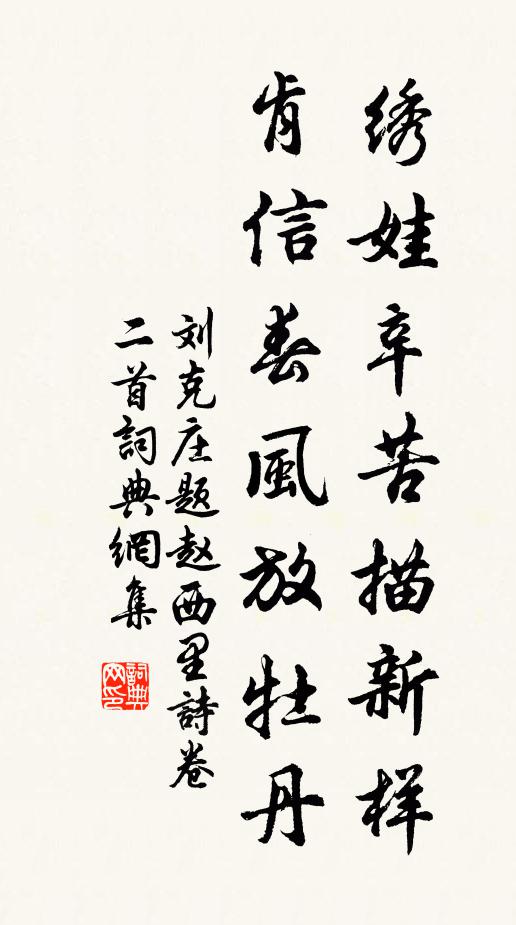 绣娃辛苦描新样
肯信春風放牡丹
刘克庄题赵西里詩卷
二首詞典網集
詞典网印